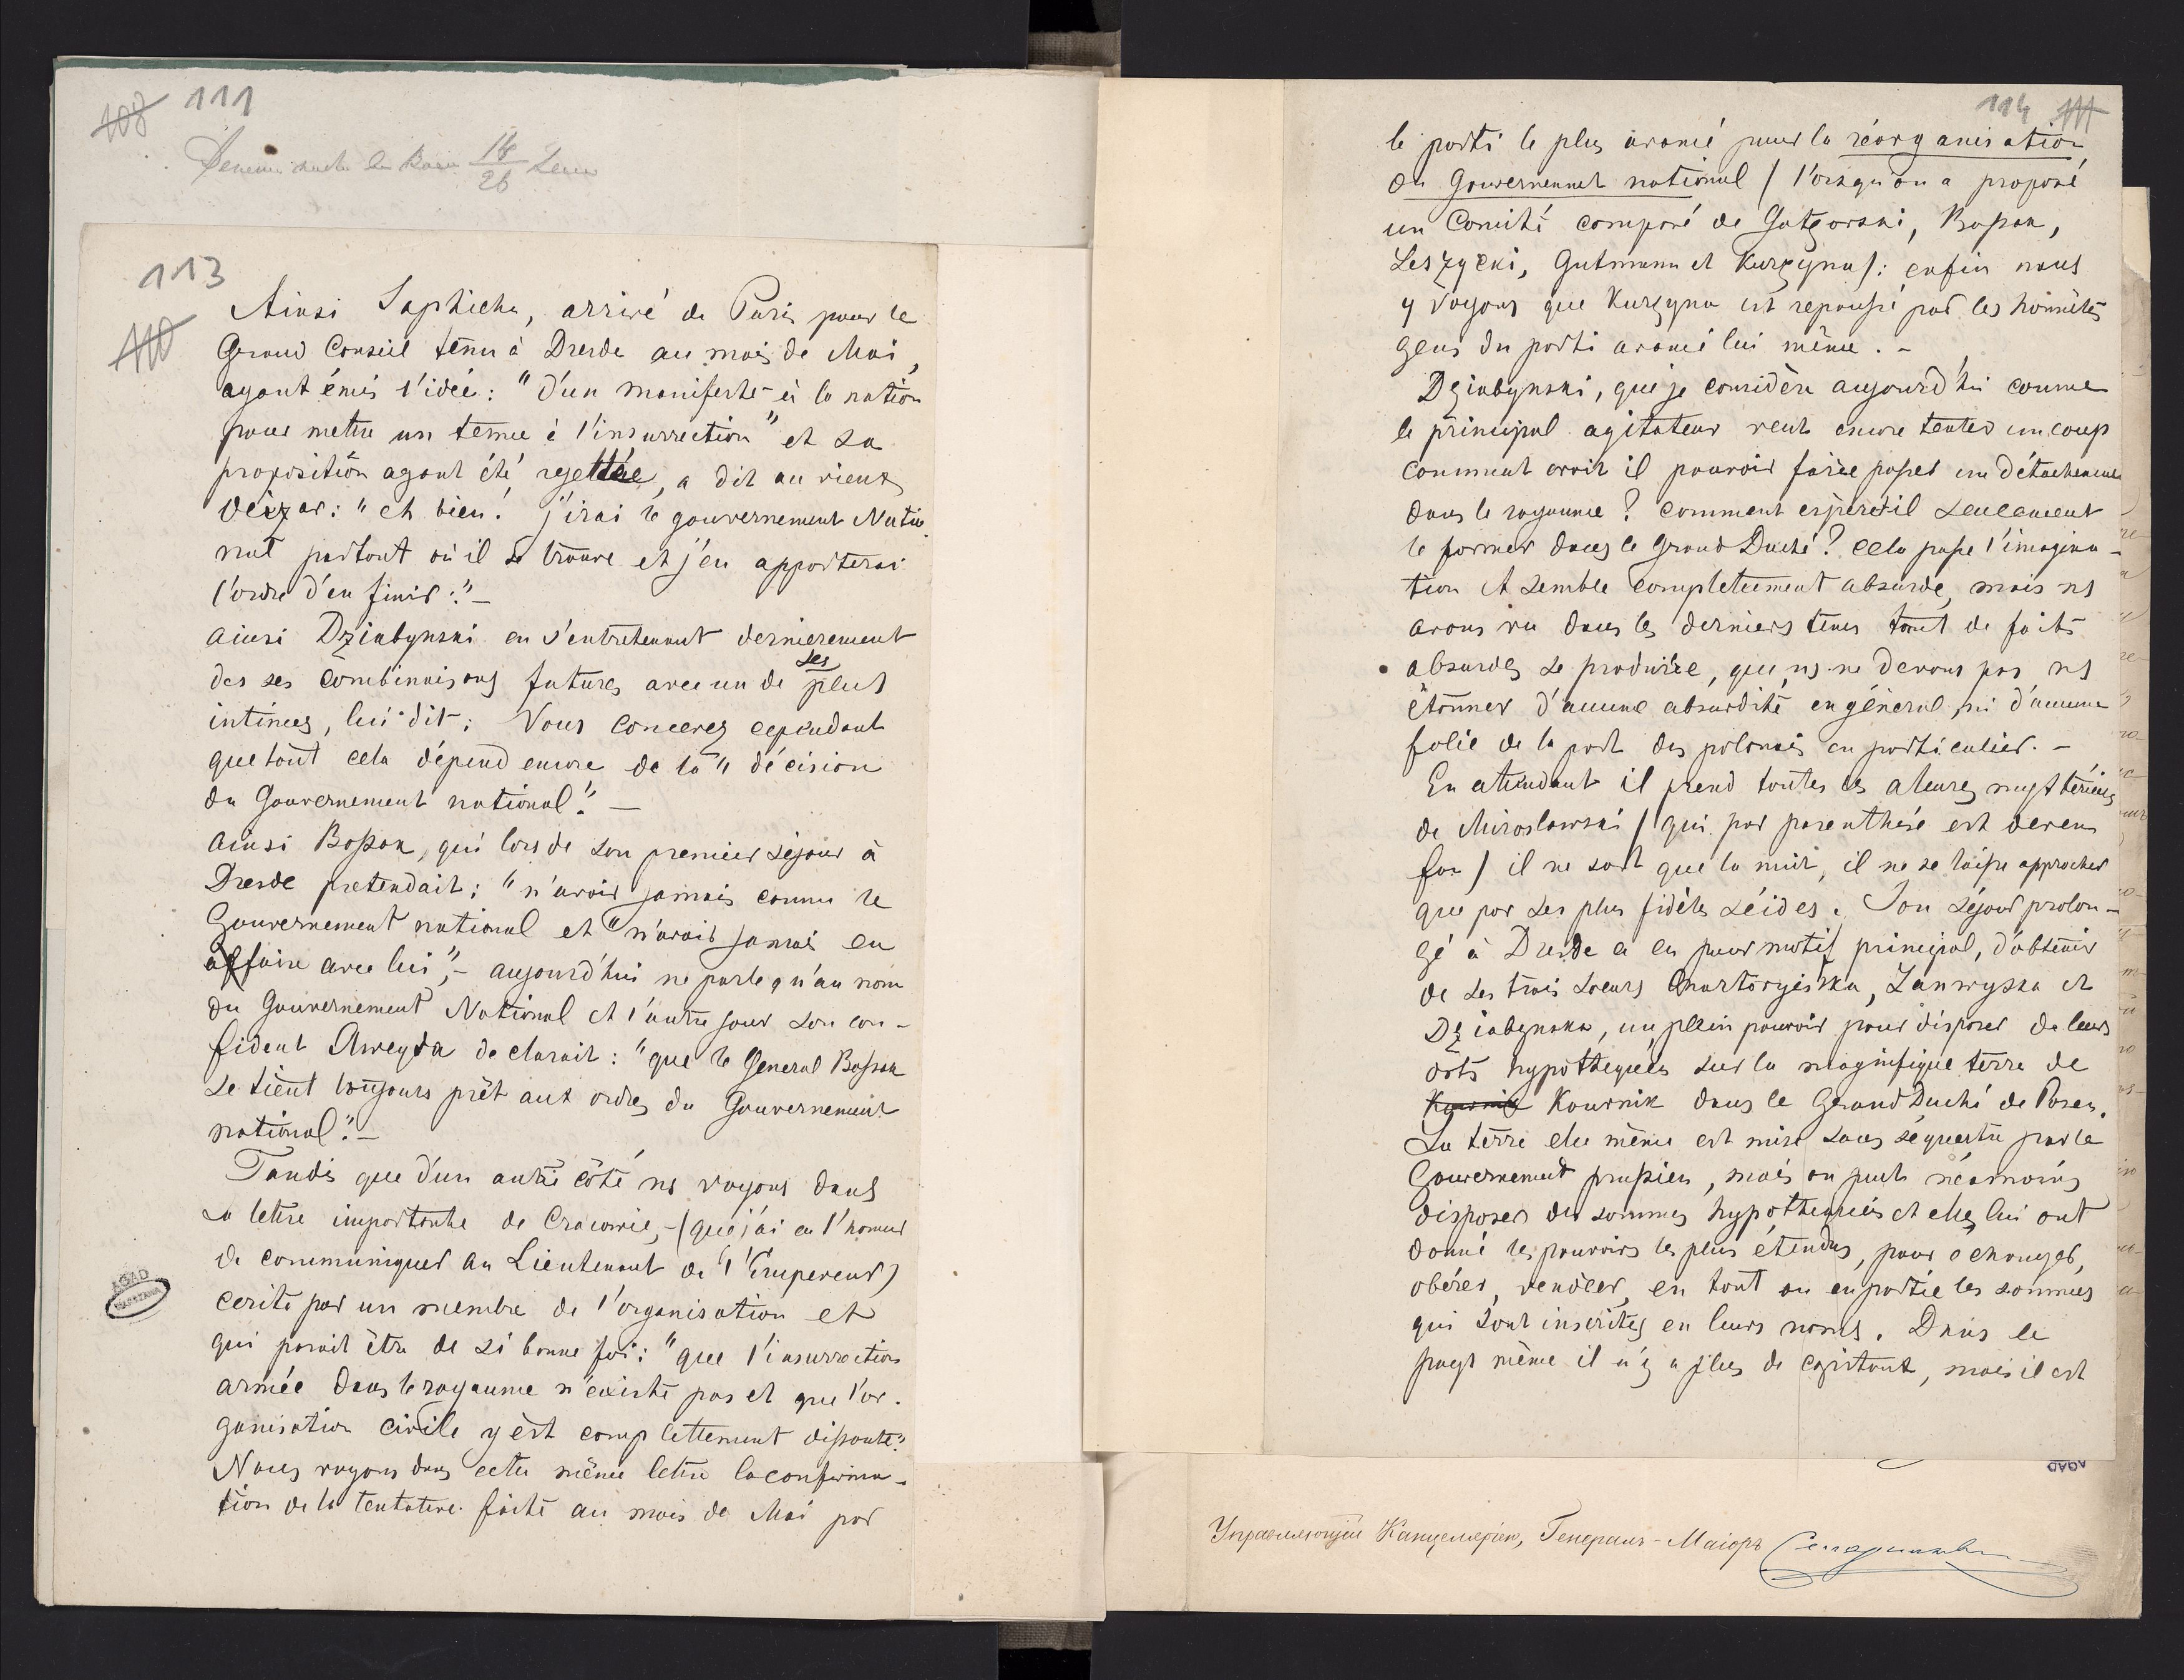 108 111
18
26
113
110
Ainsi Saphieha, arrivé de Paris pour le
Grand Conseil tenu à Dresde au mois de Mai,
ayant émis l'idée: "d'un manifeste à la nation
pour mettre un terme à l'insurrection" et sa
proposition ayant été rejettée, a dit au vieux
"eh bien! j'irai le gouvernement Natio-
nal partout où il se trouve et j'en apporterai
l'ordre d'en finir:" -
ainsi Dziabynski en s'entretenant dernierement
des ses combinaisons futures avec un de ses plus
intimes, lui dit: Vous concevez cependant
que tout cela dépend encore de la "décision
du Gouvernement national". -
ainsi Bossak, qui lors de son premier séjour à
Dresde pretendait: "n'avoir jamais connu le
Gouvernement national et "n'avoir jamais eu
affaire avec lui", - aujourd'hui ne parle qu'au nom
du Gouvernement National et l'autre jour son con-
fident Aweyda declarait: "que le General Bossak
se tient toujours prêt aux ordres du Gouvernement
national". -
Tandis que d'un autre côté ns voyons dans
la lettre importante de Cracovie, - (que j'ai eu l'honneur
de communiquer au Lieutenant de l'Empereur)
ecrite par un membre de l'organisation et
qui parait être de si bonne foi: "que l'insurrection
armée dans le royaume n'existe pas et que l'or-
ganisation civile y est complettement dissoute".
Nous voyons dans cette même lettre la confirma-
tion de la tentative faite au mois de Mai par
AGAD
WARSZAWA
114 111
le parti le plus avancé pour la réorganisation
du Gouvernement national (l'orsqu'on a proposé
un Comité composé de Gutzorski, Bossak,
Leszycki, Gutmann et Kurzyna): enfin nous
y voyons que Kurzyna est repoussé par les honnêtes
gens du parti avancé lui même. -
Dziabynski, que je considère aujourd'hui comme
le principal agitateur veut encore tenter un coup
comment croit il pouvoir faire passer un détachement
dans le royaume? comment espère-t-il seulement
le former dans le Grand Duché? cela passe l'imagina-
tion et semble completement absurde, mais ns
avons vu dans les derniers tems tant de faits
absurdes se produire, que ns ne devons pas ns
étonner d'aucune absurdité en général, ni d'aucune
folie de la part des polonais en particulier. -
En attendant il prend toutes les aleures mystérieuses
de Miroslawski (qui par parenthése est devenu
fou) il ne sort que la nuit, il ne se laisse approcher
que par ses plus fidèles séides. Son séjour prolon-
gé à Dresde a eu pour motif principal, d'obtenir
de ses trois soeurs Czartoryiska, Zamoyska et
Dziabynska, un plein pouvoir pour disposer de leurs
dots hypothequées sur la magnifique terre de
Kournik Kournik dans le Grand Duché de Posen.
La terre elle même est mise sous séquestre par le
Gouvernement prussien, mais on peut néanmoins
disposer des sommes hypothequées et elles lui ont
donné les pouvoirs les plus étendus, pour échanger,
obérer, vendre, en tout ou en partie les sommes
qui sont inscrites en leurs noms. Dans le
pays même il n'y a plus de existant, mais il est
AGAD
Управляющій Канцеляріею, Генералъ-Маіоръ